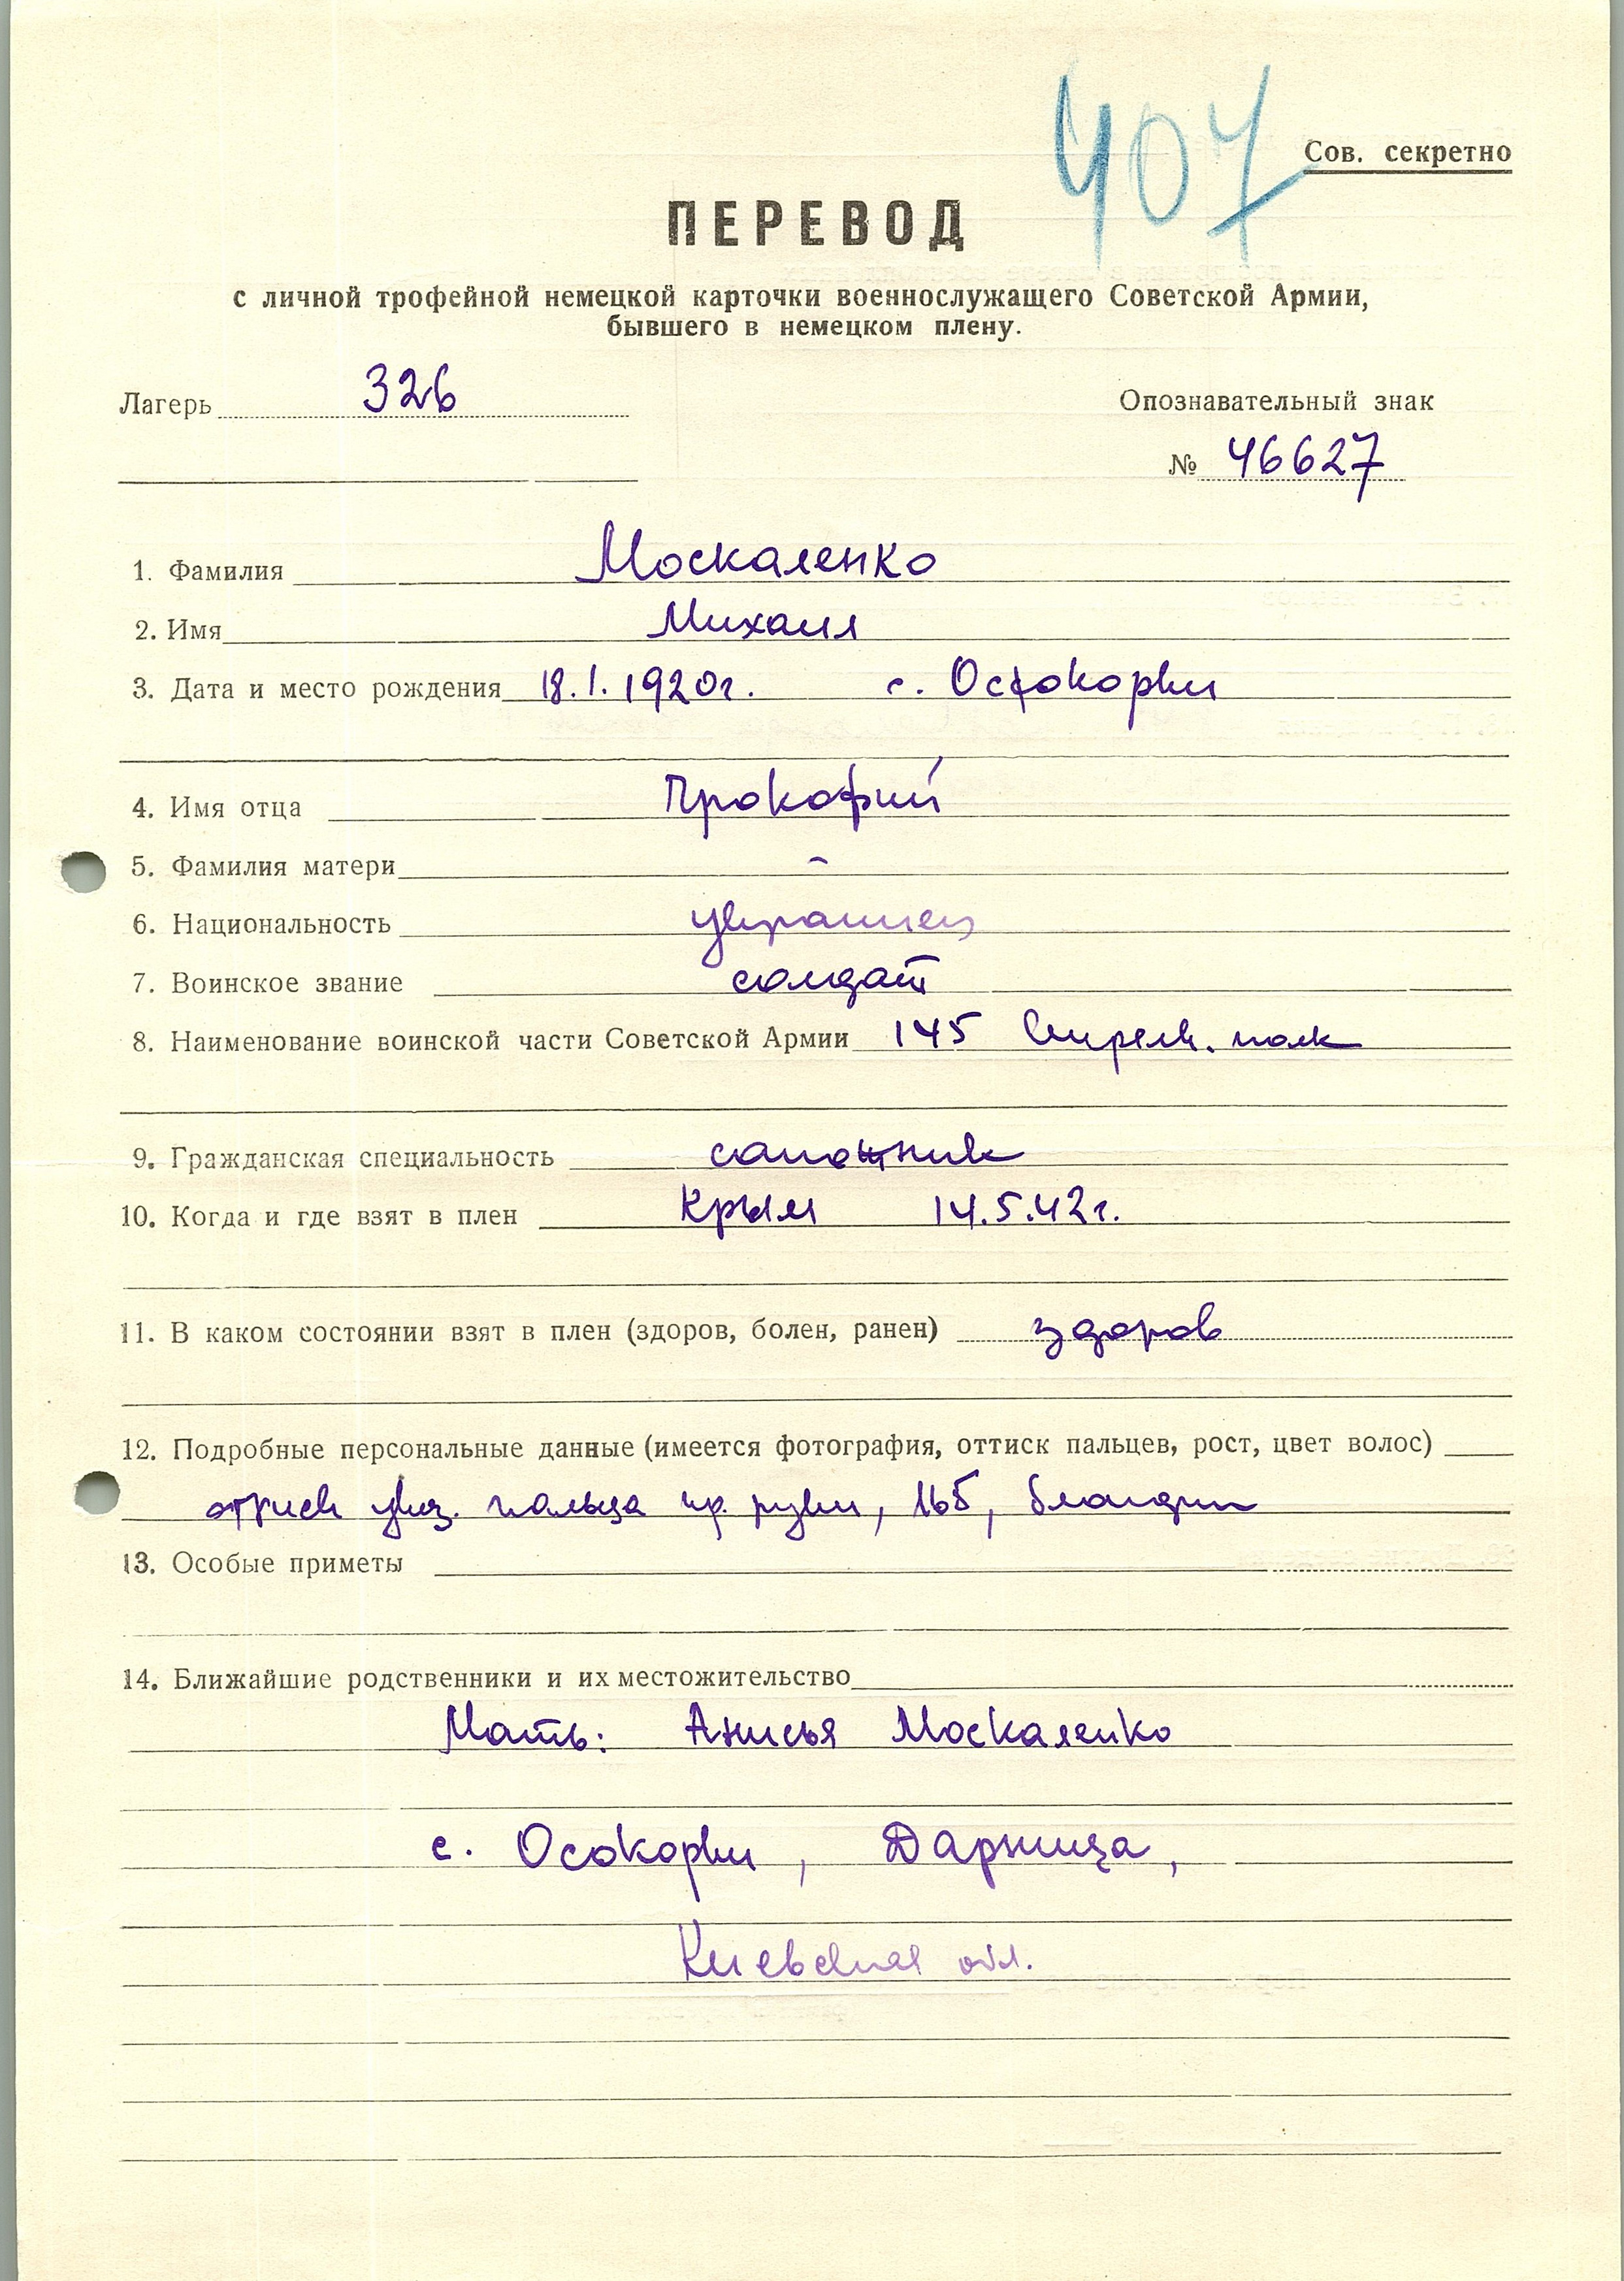 407
Сов. секретно
ПЕРЕВОД
с личной трофейной немецкой карточки военнослужащего Советской Армии,
бывшего в немецком плену.
Лагерь 326
Опознавательный знак
№ 46627
1. Фамилия Москаленко
2. Имя Михаил
3. Дата и место рождения 18.1.1920г. с. Осокорки
4. Имя отца Прокофий
5. Фамилия матери -
6. Национальность украинец
7. Воинское звание солдат
8. Наименование воинской части Советской Армии 145 Стрелк. полк
9. Гражданская специальность сапожник
10. Когда и где взят в плен Крым 14.5.42г.
11. В каком состоянии взят в плен (здоров, болен, ранен) здоров
12. Подробные персональные данные (имеется фотография, оттиск пальцев, рост, цвет волос)
оттиск указ. пальца пр. руки, 165, блондин
13. Особые приметы
14. Ближайшие родственники и их местожительство
Мать: Анисья Москаленко
с. Осокорки, Дарница,
Киевская обл.